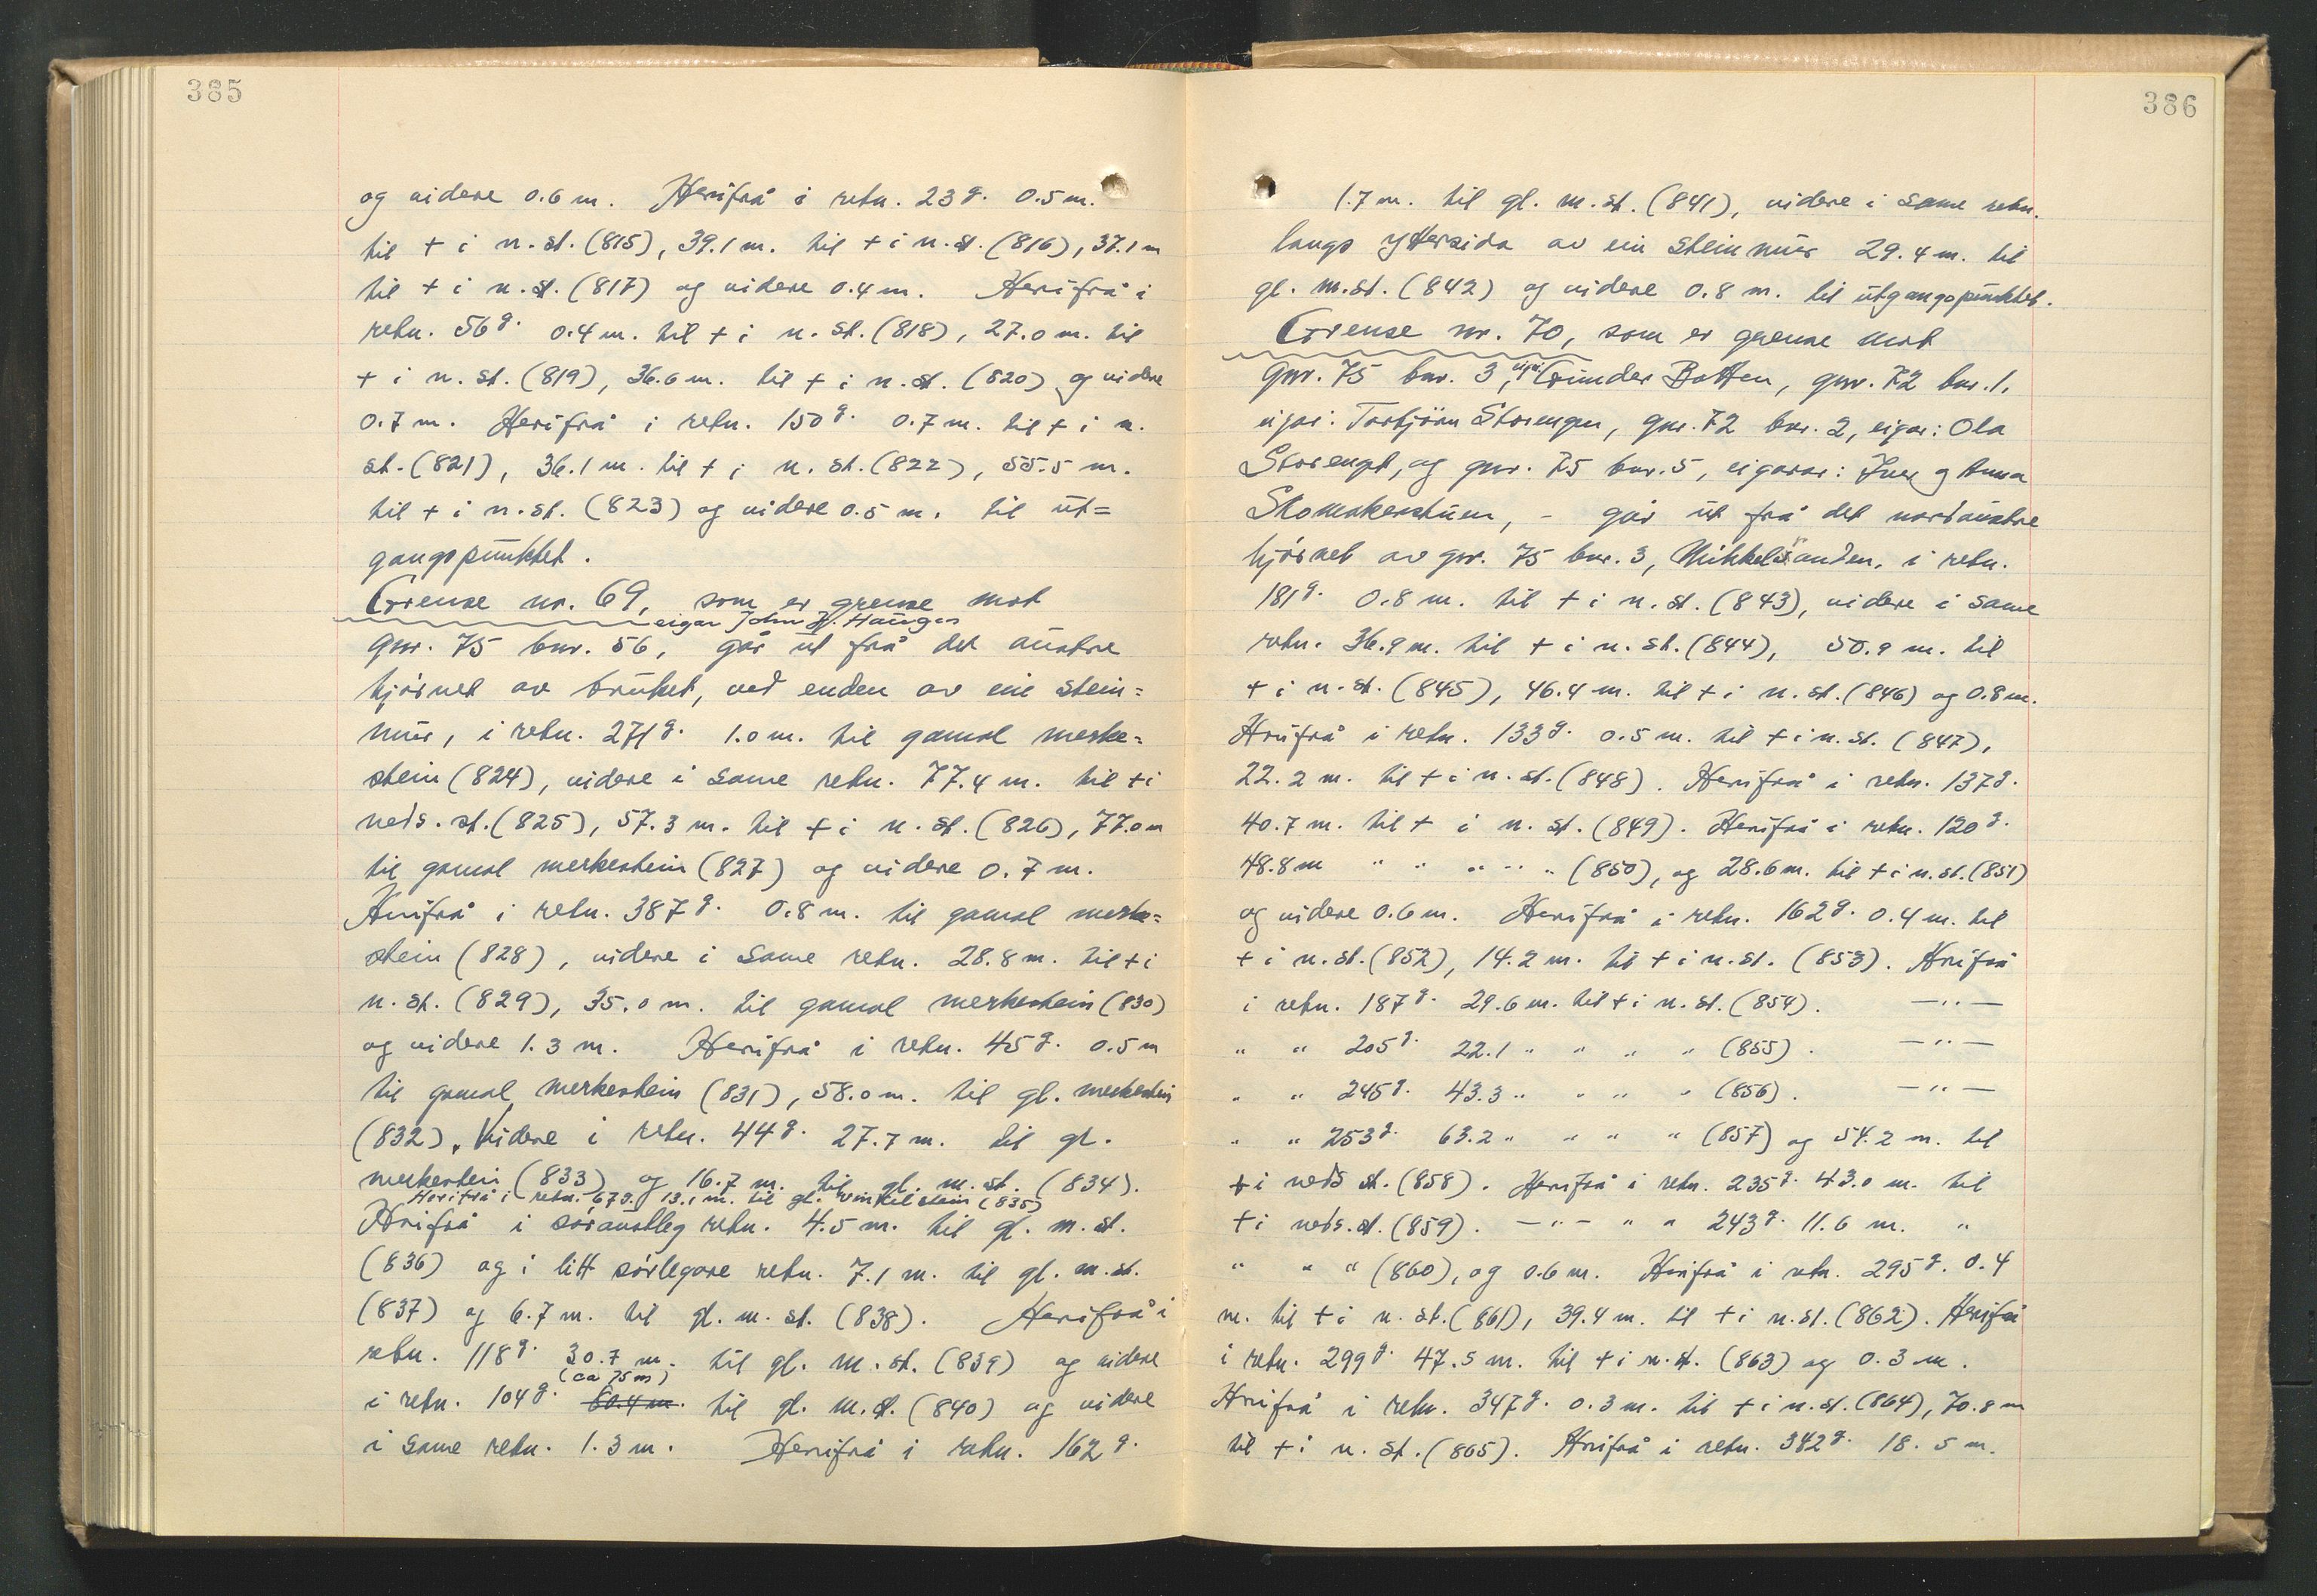 385
og videre 0.6 m. Herifrå i retn. 23g. 0.5 m.
til + i n. st. (815), 39.1 m. til + i n. st. (816), 37.1 m
til + i n. st. (817) og videre 0.4 m. Herifrå i
retn. 56g. 0.4 m. til + i n. st. (818), 27.0 m. til
+ i n. st. (819), 36.6 m. til + i n. st. (820) og videre
0.7 m. Herifrå i retn. 150g. 0.7 m. til + i n.
st. (821), 36.1 m. til + i n. st. (822), 55.5 m.
til + i n. st. (823) og videre 0.5 m. til ut=
gangspunktet.
Grense nr. 69, som er grense mot
eigar John H. Haugen
gnr. 75 bnr. 56, går ut frå det austre
hjørnet av bruket, ved enden av ein stein=
mur, i retn. 271g. 1.0 m. til gamal merke=
stein (824), videre i same retn. 77.4 m. til + i
neds. st. (825), 57.3 m. til + i n. st. (826), 77.0 m
til gamal merkestein (827) og videre 0.7 m.
Herifrå i retn. 387g. 0.8 m. til gamal merke=
stein (828), videre i same retn. 28.8 m. til + i
n. st. (829), 35.0 m. til gamal merkestein (830)
og videre 1.3 m. Herifrå i retn. 45g. 0.5 m
til gamal merkestein (831), 58.0 m. til gl. merkestein
(832). Videre i retn. 44g. 27.7 m. til gl.
merkestein (833) og 16.7 m. til gl. m. st. (834).
Herifrå i retn. 67g. 13.1 m. til gl. vinkelstein (835)
Herifrå i søraustleg retn. 4.5 m. til gl. m. st.
(836) og i litt sørlegare retn. 7.1 m. til gl. m. st.
(837) og 6.7 m. til gl. m. st. (838). Herifrå i
retn. 118g. 30.7 m. til gl. m. st. (839) og videre
(ca 75 m)
i retn. 104g. 60.4 m. til gl. m. st. (840) og videre
i same retn. 1.3 m. Herifrå i retn. 162g.
386
1.7 m. til gl. m. st. (841), videre i same retn.
langs yttersida av ein steinmur 29.4 m. til
gl. m. st. (842) og videre 0.8 m. til utgangspunktet.
Grense nr. 70, som er grense mot
gnr. 75 bnr. 3, eigar: Gunder Botten, gnr. 72 bnr. 1,
eigar: Torbjørn Storengen, gnr. 72 bnr. 2, eigar: Ola
Storengt, og gnr. 75 bnr. 5, eigarar: Iver og Anna
Skomakerstuen, - går ut frå det nordaustre
hjørnet av gnr. 75 bnr. 3, Mikkelsanden, i retn.
181g. 0.8 m. til + i n. st. (843), videre i same
retn. 36.9 m. til + i n. st. (844), 50.9 m. til
+ i n. st. (845), 46.4 m. til + i n. st. (846) og 0.8 m.
Herifrå i retn. 133g. 0.5 m. til + i n. st. (847),
22.2 m. til + i n. st. (848). Herifrå i retn. 137g.
40.7 m. til + i n. st. (849). Herifrå i retn. 120g.
48.8 m " " " " " (850), og 28.6 m. til + i n. st. (851)
og videre 0.6 m. Herifrå i retn. 162g. 0.4 m. til
+ i n. st. (852), 14.2 m. til + i n. st. (853). Herifrå
i retn. 187g. 29.6 m. til + i n. st. (854). — " —
" " 205g. 22.1 " " " " (855). — " —
" " 245g. 43.3 " " " " (856). — " —
" " 253g. 63.2 " " " " (857) og 54.2 m. til
+ i neds st. (858). Herifrå i retn. 235g. 43.0 m. til
+ i neds. st. (859). — " — " " 243g. 11.6 m. "
" " " (860), og 0.6 m. Herifrå i retn. 295g. 0.4
m. til + i n. st. (861), 39.4 m. til + i n. st. (862). Herifrå
i retn. 299g. 47.5 m. til + i n. st. (863) og 0.3 m.
Herifrå i retn. 347g. 0.3 m. til + i n. st. (864), 70.8 m
til + i n. st. (865). Herifrå i retn. 342g. 18.5 m.